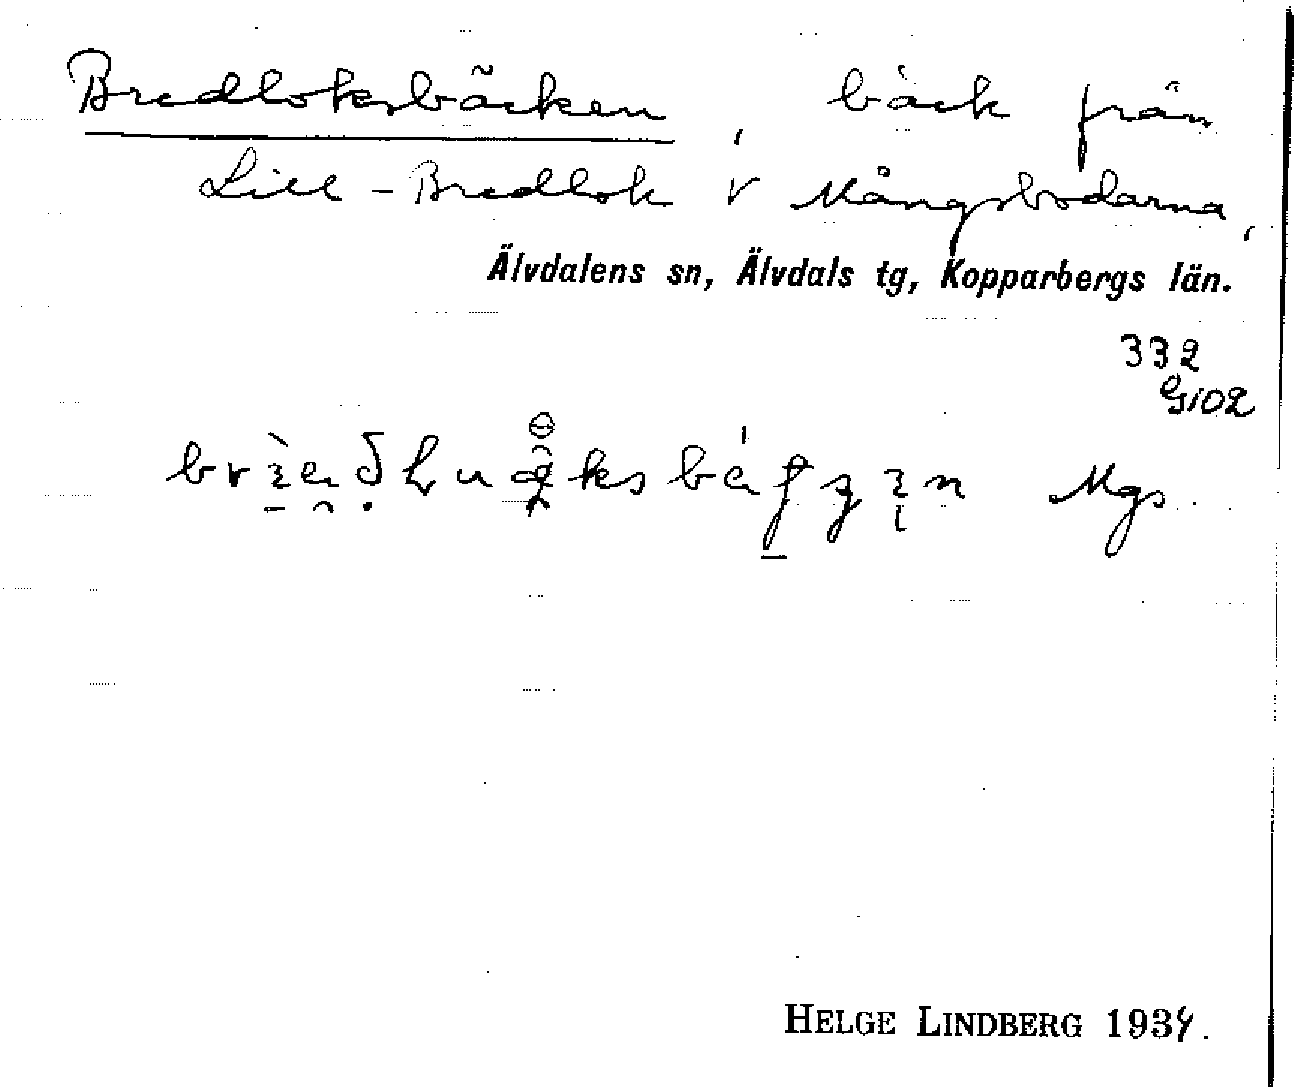 Bredloksbäcken, bäck från
Lill-Bredlok v Mångsbodarna,
Älvdalens sn, Älvdals tg, Kopparbergs län.
332
G102
Mgs.
HELGE LINDBERG 1934.